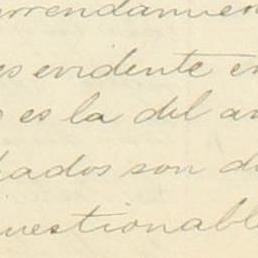 urrendamien
es evidente en
s es la del an
tados son d
uestionabl